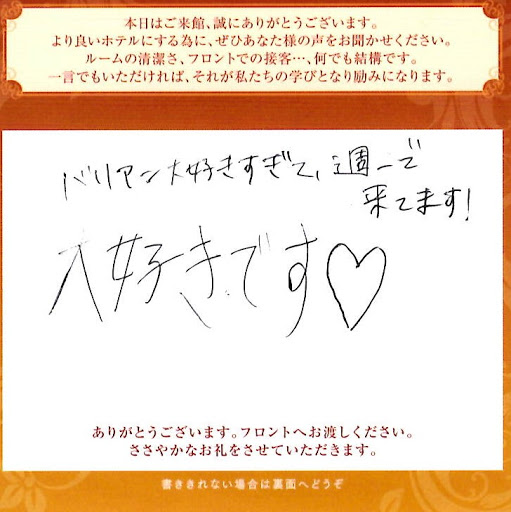 本日はご来館、誠にありがとうございます。
より良いホテルにする為に、ぜひあなた様の声をお聞かせください。
ルームの清潔さ、フロントでの接客…、何でも結構です。
一言でもいただければ、それが私たちの学びとなり励みになります。
バリアン大好きすぎて、週一で
来てます!
大好きです♡
ありがとうございます。フロントへお渡しください。
ささやかなお礼をさせていただきます。
書ききれない場合は裏面へどうぞ